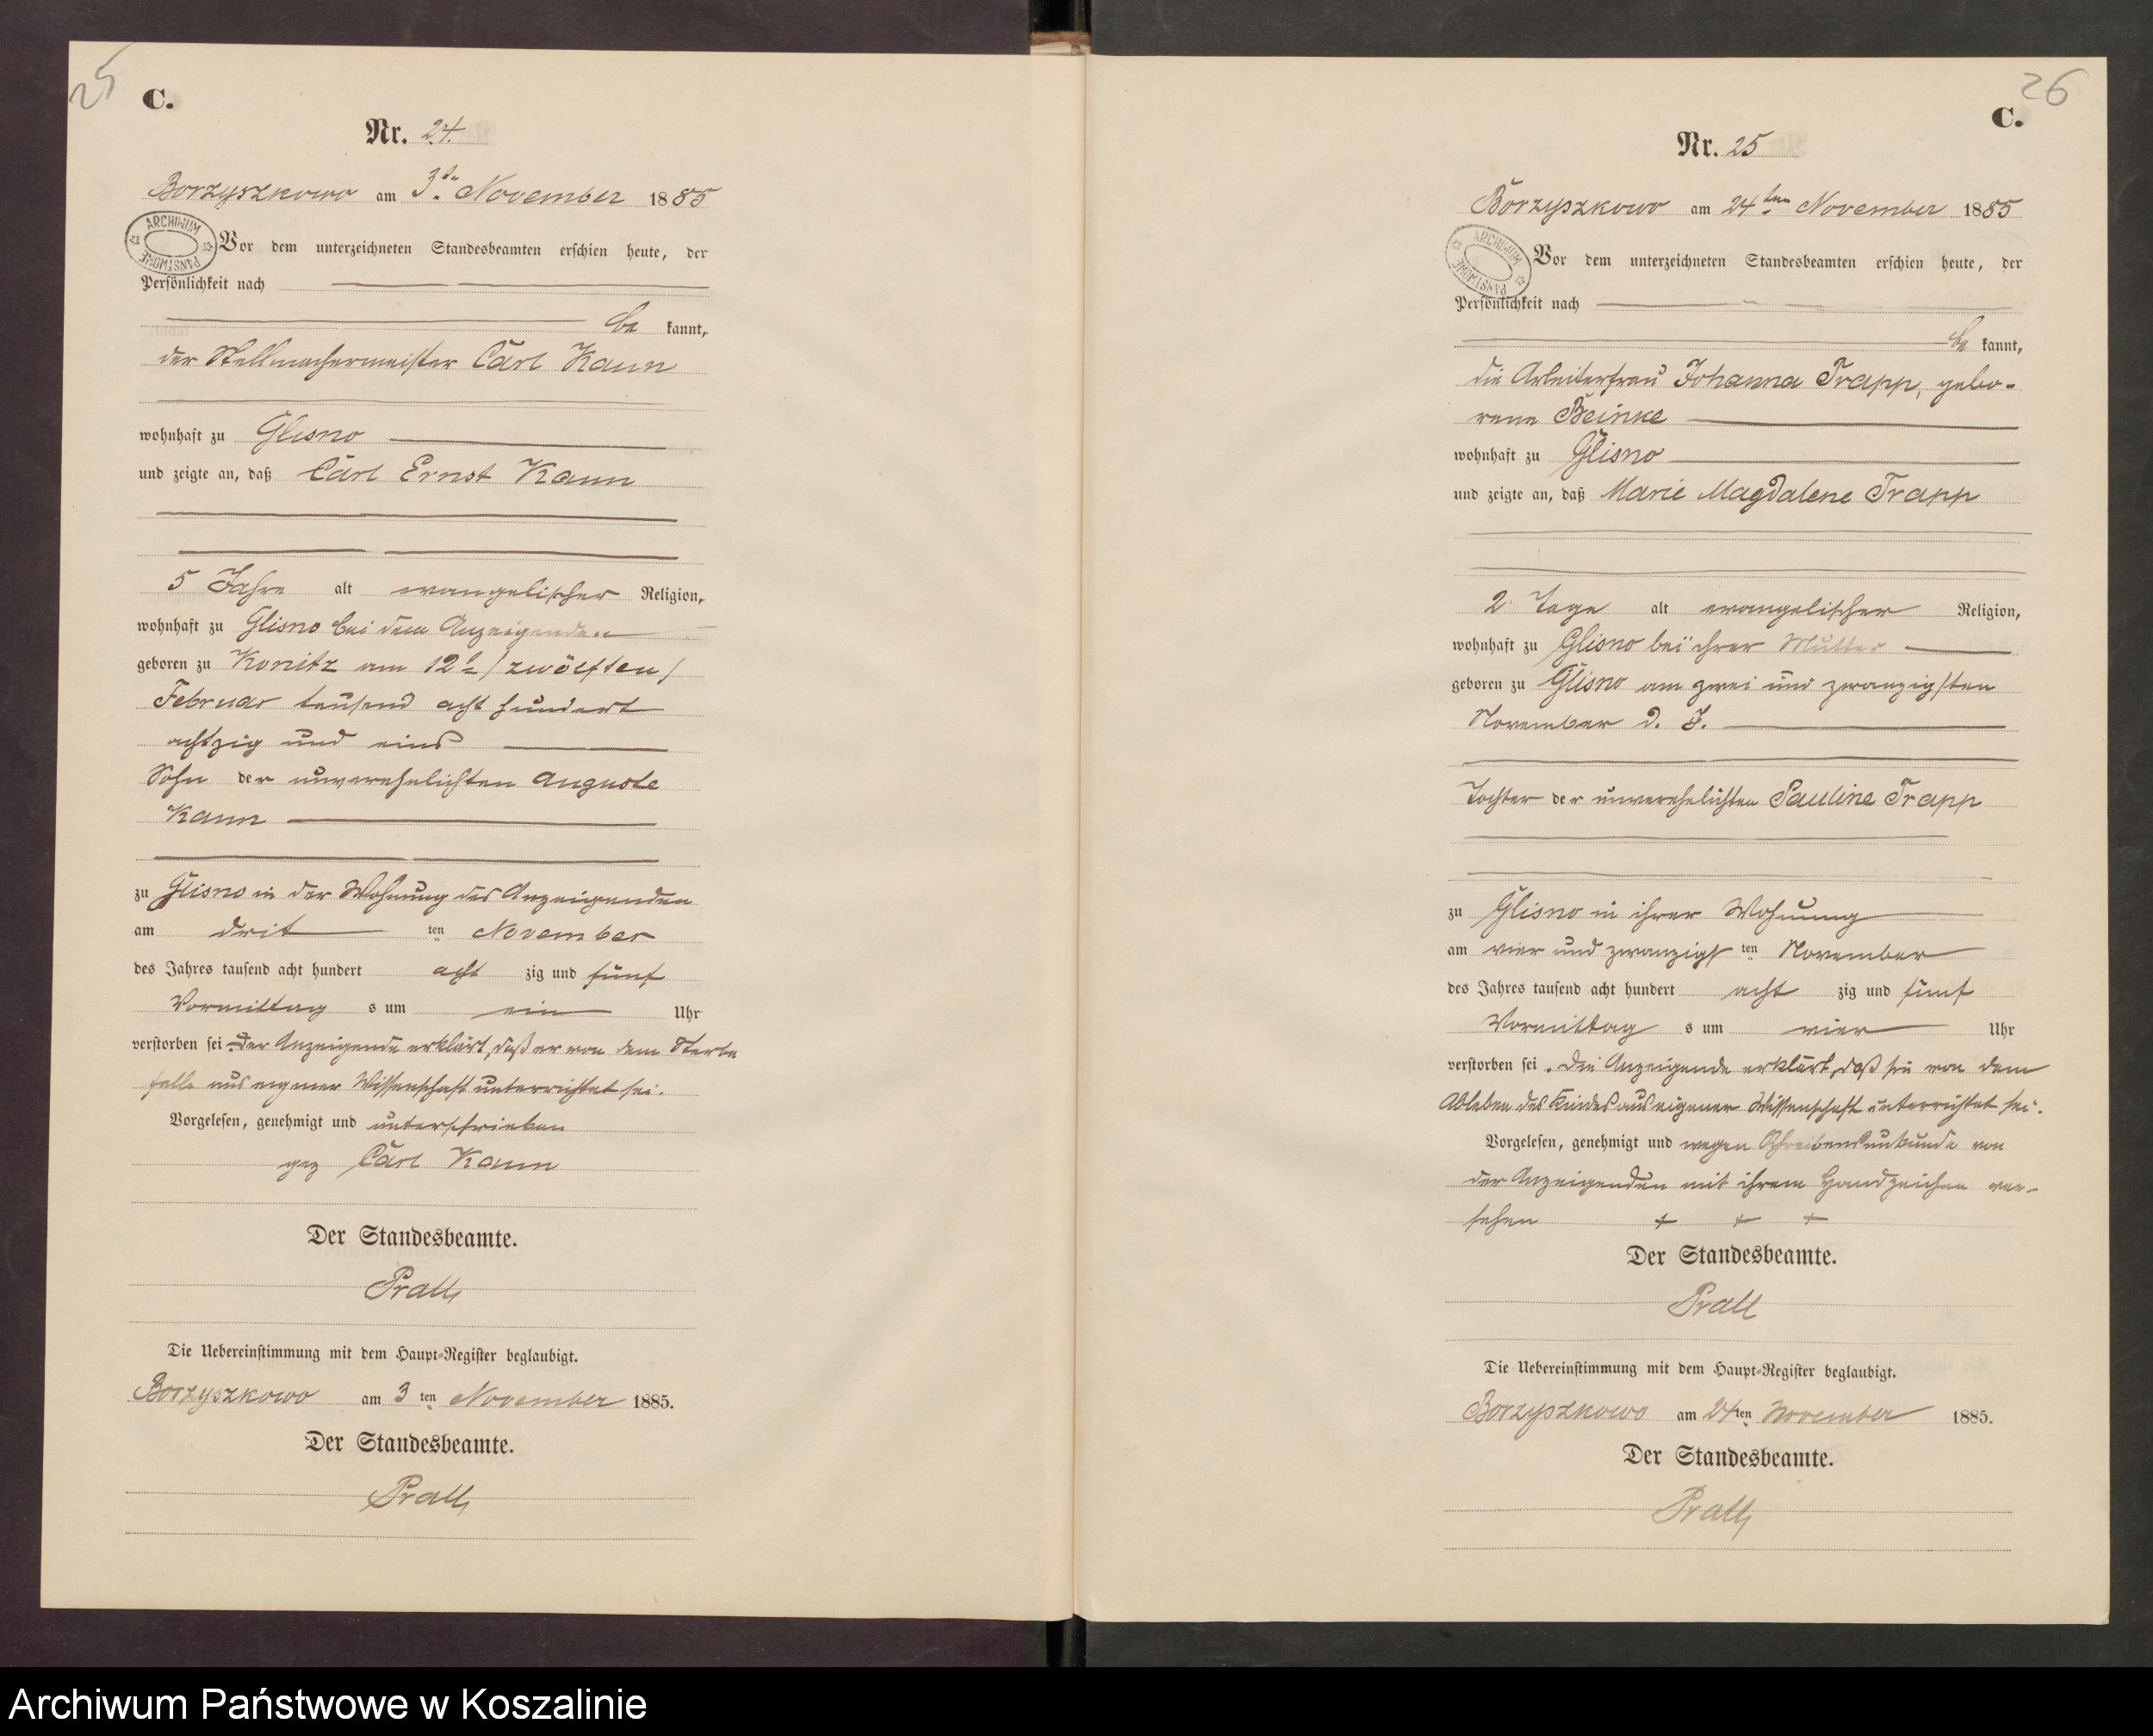 25
C.
Nr. 24.
Borzyszkowo am 3ten November 1885
ARCHIWUM PAŃSTWOWE
Vor dem unterzeichneten Standesbeamten erschien heute, der
Persönlichkeit nach
be kannt,
der Stellmachermeister Carl Kann
wohnhaft zu Glisno
und zeigte an, daß Carl Ernst Kann
5 Jahre alt evangelischer Religion,
wohnhaft zu Glisno bei dem Anzeigenden
geboren zu Konitz am 12t /zwölften/
Februar tausend acht hundert
achtzig und eins
Sohn der unverehelichten Auguste
Kann
zu Glisno in der Wohnung des Anzeigenden
am drit ten November
des Jahres tausend acht hundert acht zig und fünf
Vormittag s um ein Uhr
verstorben sei Der Anzeigende erklärt, daß er von dem Sterbe
falle aus eigener Wissenschaft unterrichtet sei.
Vorgelesen, genehmigt und unterschrieben
gez Carl Kann
Der Standesbeamte.
Prall
Die Uebereinstimmung mit dem Haupt=Register beglaubigt.
Borzyszkowo am 3 ten November 1885.
Der Standesbeamte.
Prall
26
C.
Nr. 25
Borzyszkowo am 24ten November 1885
ARCHIWUM PAŃSTWOWE
Vor dem unterzeichneten Standesbeamten erschien heute, der
Persönlichkeit nach
be kannt,
die Arbeiterfrau Johanna Trapp, gebo-
rene Beinke
wohnhaft zu Glisno
und zeigte an, daß Marie Magdalene Trapp
2 Tage alt evangelischer Religion,
wohnhaft zu Glisno bei ihrer Mutter
geboren zu Glisno am zwei und zwanzigsten
November d. J.
Tochter der unverehelichten Pauline Trapp
zu Glisno in ihrer Wohnung
am vier und zwanzigs ten November
des Jahres tausend acht hundert acht zig und fünf
Vormittag s um vier Uhr
verstorben sei. Die Anzeigende erklärt, daß sie von dem
Ableben des Kindes aus eigener Wissenschaft unterrichtet sei.
Vorgelesen, genehmigt und wegen Schreibensunkunde von
der Anzeigenden mit ihrem Handzeichen ver-
sehen + + +
Der Standesbeamte.
Prall
Die Uebereinstimmung mit dem Haupt=Register beglaubigt.
Borzyszkowo am 24ten November 1885.
Der Standesbeamte.
Prall
Archiwum Państwowe w Koszalinie